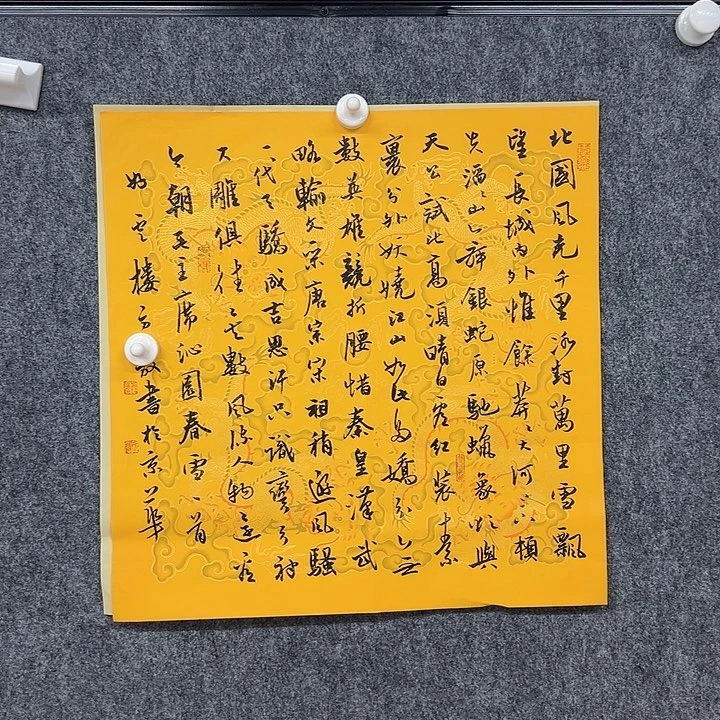 北國風光千里冰封萬里雪飄
望長城內外惟餘莽々大河上下頓
失滔々山舞銀蛇原馳蠟象欲與
天公試比高須晴日看紅裝素
裹分外妖嬈江山如此多嬌引無
數英雄競折腰惜秦皇漢武
略輸文采唐宗宋祖稍遜風騷
一代天驕成吉思汗只識彎弓射
大雕俱往矣數風流人物還看
今朝毛主席沁園春雪一首
雲樓書於京華